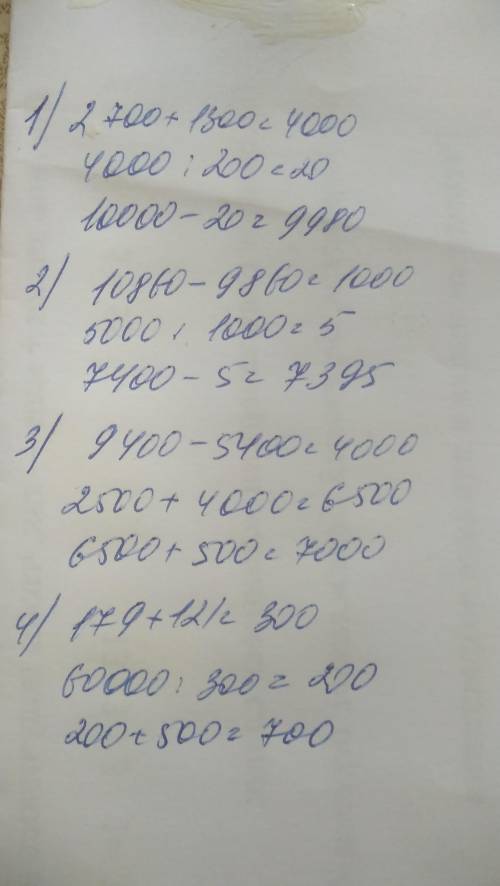 1) 2 700 + 1300 = 4000
4000 : 200 = 20
10000 - 20 = 9980
2) 10860 - 9860 = 1000
5000 : 1000 = 5
7400 - 5 = 7395
3) 9400 - 5400 = 4000
2500 + 4000 = 6500
6500 + 500 = 7000
4) 179 + 121 = 300
60000 : 300 = 200
200 + 500 = 700